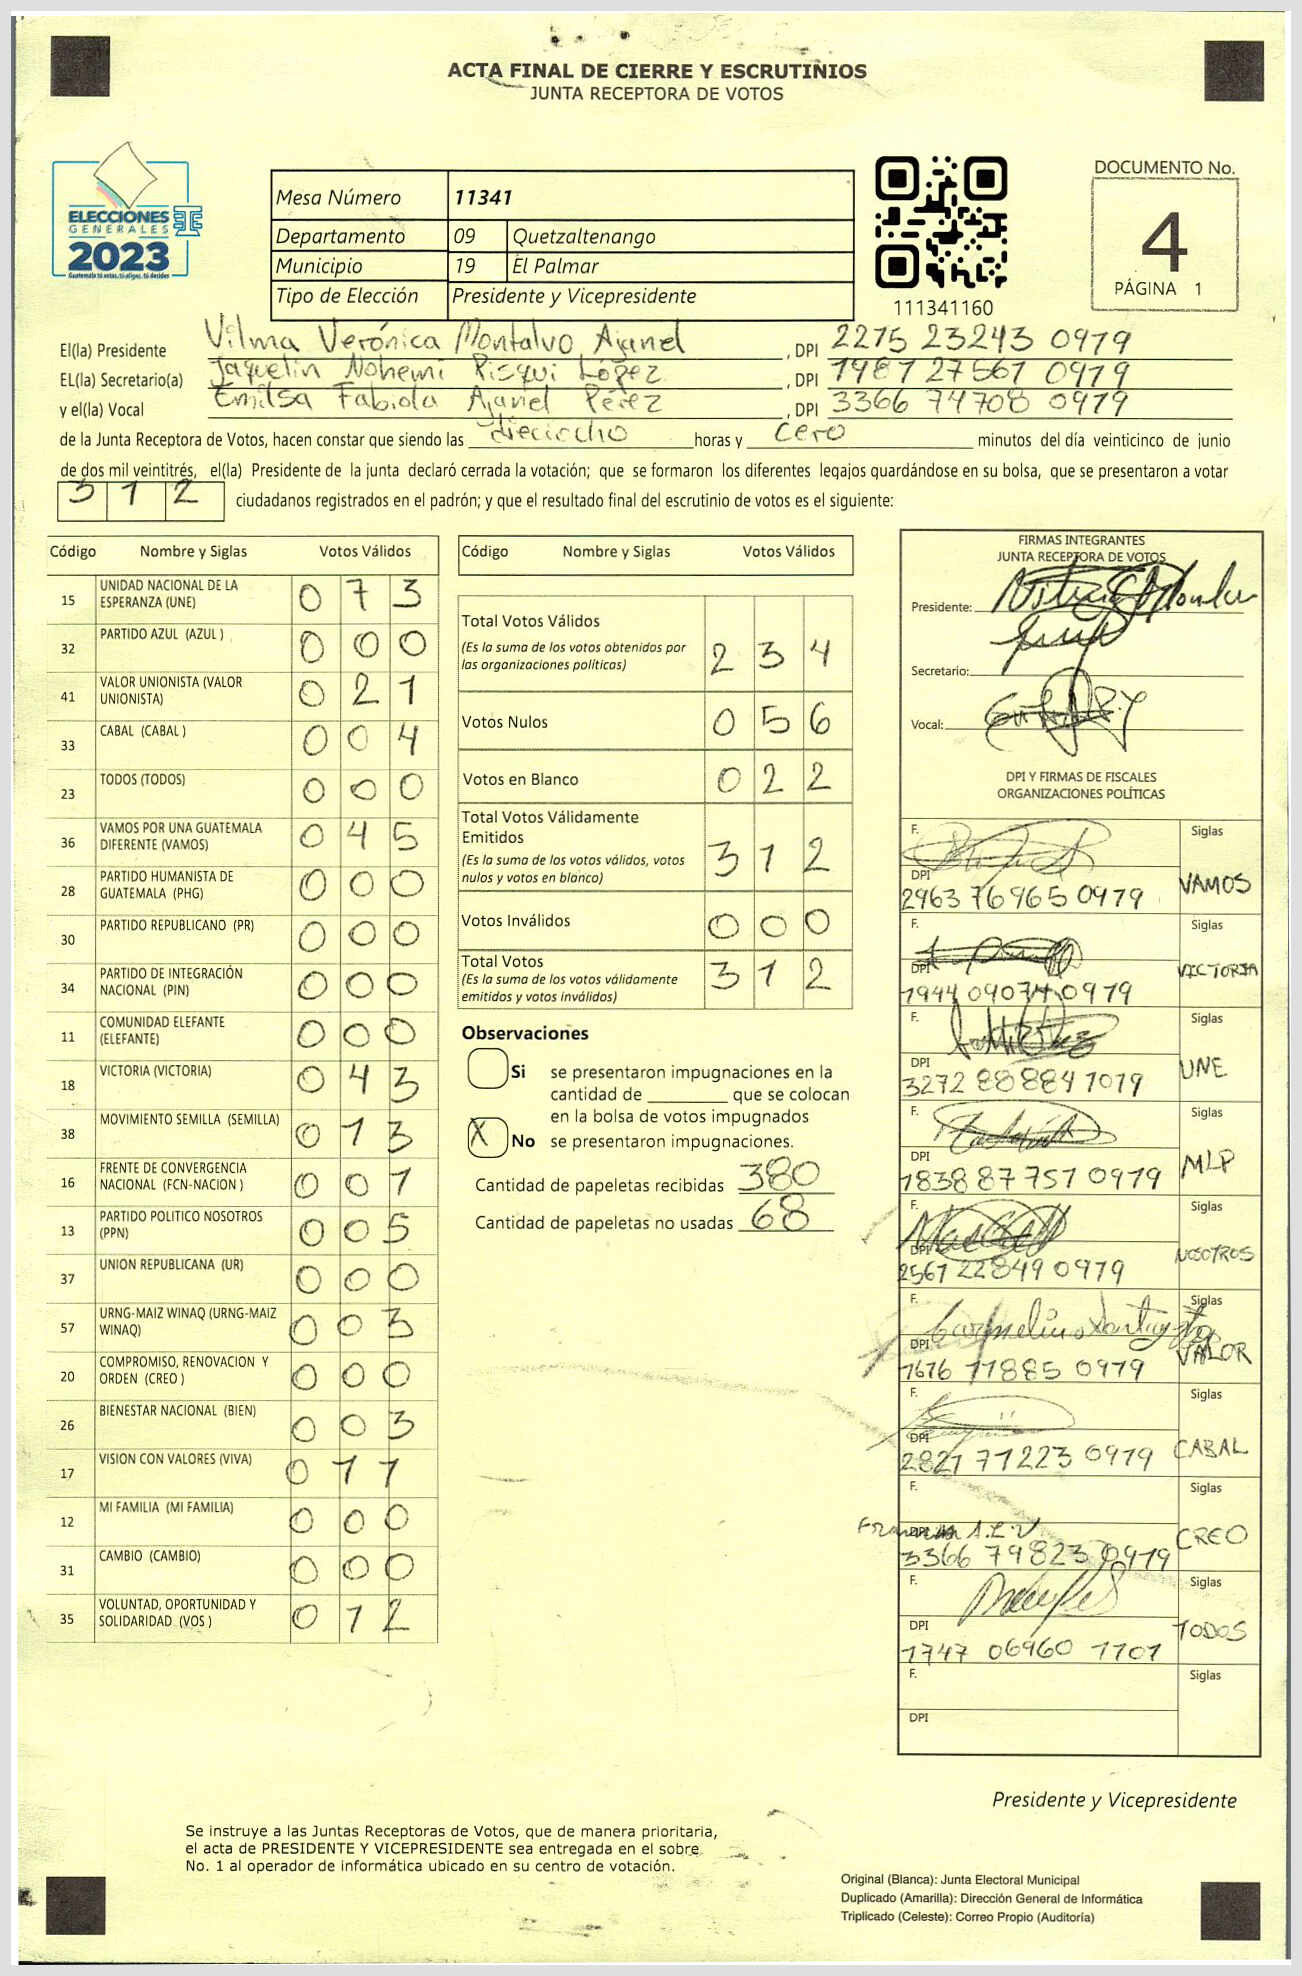 ACTA FINAL DE CIERRE Y ESCRUTINIOS
JUNTA RECEPTORA DE VOTOS
ELECCIONES
GENERALES
2023
Guatemala tú votas, tú eliges, tú decides
Mesa Número 11341
Departamento 09 Quetzaltenango
Municipio 19 El Palmar
Tipo de Elección Presidente y Vicepresidente
111341160
DOCUMENTO No.
4
PÁGINA 1
El(la) Presidente Vilma Verónica Montalvo Ajanel, DPI 2275 23243 0979
EL(la) Secretario(a) Jaquelin Nohemi Pisqui López, DPI 1981 27561 0979
y el(la) Vocal Emilsa Fabiola Ajanel Pérez, DPI 3366 74708 0979
de la Junta Receptora de Votos, hacen constar que siendo las dieciocho horas y cero minutos del día veinticinco de junio
de dos mil veintitrés, el(la) Presidente de la junta declaró cerrada la votación; que se formaron los diferentes legajos quardándose en su bolsa, que se presentaron a votar
312 ciudadanos registrados en el padrón; y que el resultado final del escrutinio de votos es el siguiente:
Código Nombre y Siglas Votos Válidos
15 UNIDAD NACIONAL DE LA ESPERANZA (UNE) 073
32 PARTIDO AZUL (AZUL ) 000
41 VALOR UNIONISTA (VALOR UNIONISTA) 021
33 CABAL (CABAL ) 004
23 TODOS (TODOS) 000
36 VAMOS POR UNA GUATEMALA DIFERENTE (VAMOS) 045
28 PARTIDO HUMANISTA DE GUATEMALA (PHG) 000
30 PARTIDO REPUBLICANO (PR) 000
34 PARTIDO DE INTEGRACIÓN NACIONAL (PIN) 000
11 COMUNIDAD ELEFANTE (ELEFANTE) 000
18 VICTORIA (VICTORIA) 043
38 MOVIMIENTO SEMILLA (SEMILLA) 013
16 FRENTE DE CONVERGENCIA NACIONAL (FCN-NACION ) 001
13 PARTIDO POLITICO NOSOTROS (PPN) 005
37 UNION REPUBLICANA (UR) 000
57 URNG-MAIZ WINAQ (URNG-MAIZ WINAQ) 003
20 COMPROMISO, RENOVACION Y ORDEN (CREO ) 000
26 BIENESTAR NACIONAL (BIEN) 003
17 VISION CON VALORES (VIVA) 011
12 MI FAMILIA (MI FAMILIA) 000
31 CAMBIO (CAMBIO) 000
35 VOLUNTAD, OPORTUNIDAD Y SOLIDARIDAD (VOS ) 012
Código Nombre y Siglas Votos Válidos
Total Votos Válidos 234
(Es la suma de los votos obtenidos por
las organizaciones políticas)
Votos Nulos 056
Votos en Blanco 022
Total Votos Válidamente
Emitidos 312
(Es la suma de los votos válidos, votos
nulos y votos en blanco)
Votos Inválidos 000
Total Votos 312
(Es la suma de los votos válidamente
emitidos y votos inválidos)
Observaciones
Si se presentaron impugnaciones en la
cantidad de ________ que se colocan
en la bolsa de votos impugnados
X No se presentaron impugnaciones.
Cantidad de papeletas recibidas 380
Cantidad de papeletas no usadas 68
FIRMAS INTEGRANTES
JUNTA RECEPTORA DE VOTOS
Presidente:
Secretario:
Vocal:
DPI Y FIRMAS DE FISCALES
ORGANIZACIONES POLÍTICAS
F. Siglas
DPI 2963 76965 0979 VAMOS
F. Siglas
DPI 1944 09074 0979 VICTORIA
F. Siglas
DPI 3272 88884 1019 UNE
F. Siglas
DPI 1838 87751 0979 MLP
F. Siglas
DPI 2567 22849 0979 NOSOTROS
F. Carmelino Santiago Siglas
DPI 1676 11885 0979 VALOR
F. Siglas
DPI 2821 71223 0979 CABAL
F. Siglas
DPI 3366 79823 0979 CREO
F. Siglas
DPI 1747 06960 1101 TODOS
F. Siglas
DPI
Presidente y Vicepresidente
Se instruye a las Juntas Receptoras de Votos, que de manera prioritaria,
el acta de PRESIDENTE Y VICEPRESIDENTE sea entregada en el sobre
No. 1 al operador de informática ubicado en su centro de votación.
Original (Blanca): Junta Electoral Municipal
Duplicado (Amarilla): Dirección General de Informática
Triplicado (Celeste): Correo Propio (Auditoría)